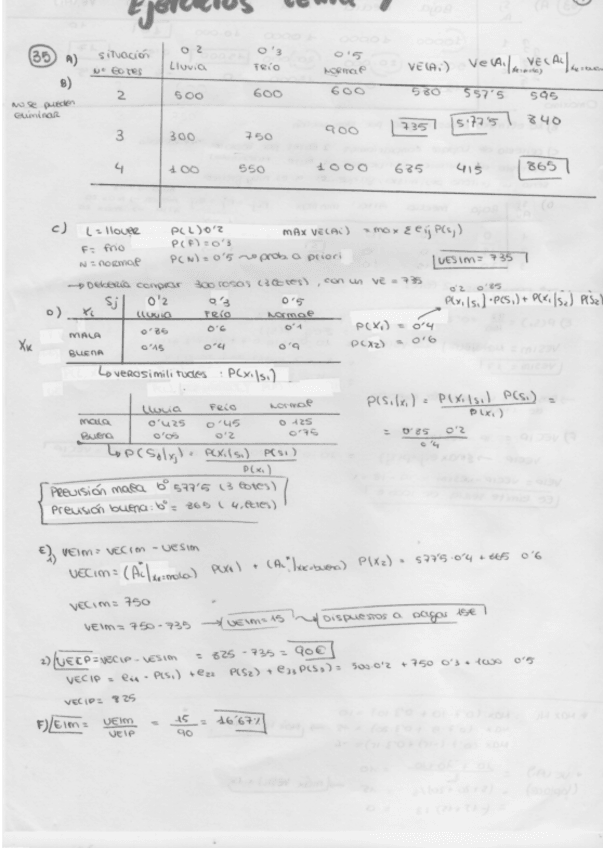 Ejercicios tema 7
35 A) situación 0'2 0'3 0'5
Nº lotes Lluvia Frío Normal VE(Ai) VE(Ai| VE(Ai|
B)
No se pueden eliminar
2 500 600 600 580 557'5 595
3 300 750 900 735 577'5 840
4 100 550 1000 685 415 865
C) L = llover P(L) 0'2 max VE(Ai) = max Σ eij P(sj)
F = frio P(F) = 0'3
N = normal P(N) = 0'5 prob a priori VESIM = 735
→ Debería comprar 300 rosas (3 lotes), con un VE = 735
0'2 0'85
D) Sj 0'2 0'3 0'5 P(x1|s1)·P(s1) + P(x1|s2) P(s2)
xi Lluvia Frío Normal
XK MALA 0'85 0'6 0'1 P(X1) = 0'4
BUENA 0'15 0'4 0'9 P(X2) = 0'6
↳ verosimilitudes: P(xi|si)
Lluvia Frío Normal P(Si|xi) = P(xi|si) P(si) / P(xi) =
mala 0'425 0'45 0'125 = 0'85 0'2 / 0'4
Buena 0'05 0'2 0'75
↳ P(Sj|xj) = P(xi|si) P(si) / P(xi)
Previsión mala bº 577'5 (3 lotes)
Previsión buena: bº = 865 (4 lotes)
E) 1) VEIM = VECIM - VESIM
VECIM = (Ai*|xk=mala) P(x1) + (Ai*|xk=buena) P(x2) = 577'5·0'4 + 865 0'6
VECIM = 750
VEIM = 750 - 735 → VEIM = 15 → Dispuestos a pagar 15€
2) VEIP = VECIP - VESIM = 825 - 735 = 90€
VECIP = e11 · P(S1) + e22 P(S2) + e33 P(S3) = 500·0'2 + 750 0'3 + 1000 0'5
VECIP = 825
F) EIM = VEIM / VEIP = 15 / 90 = 16'67%